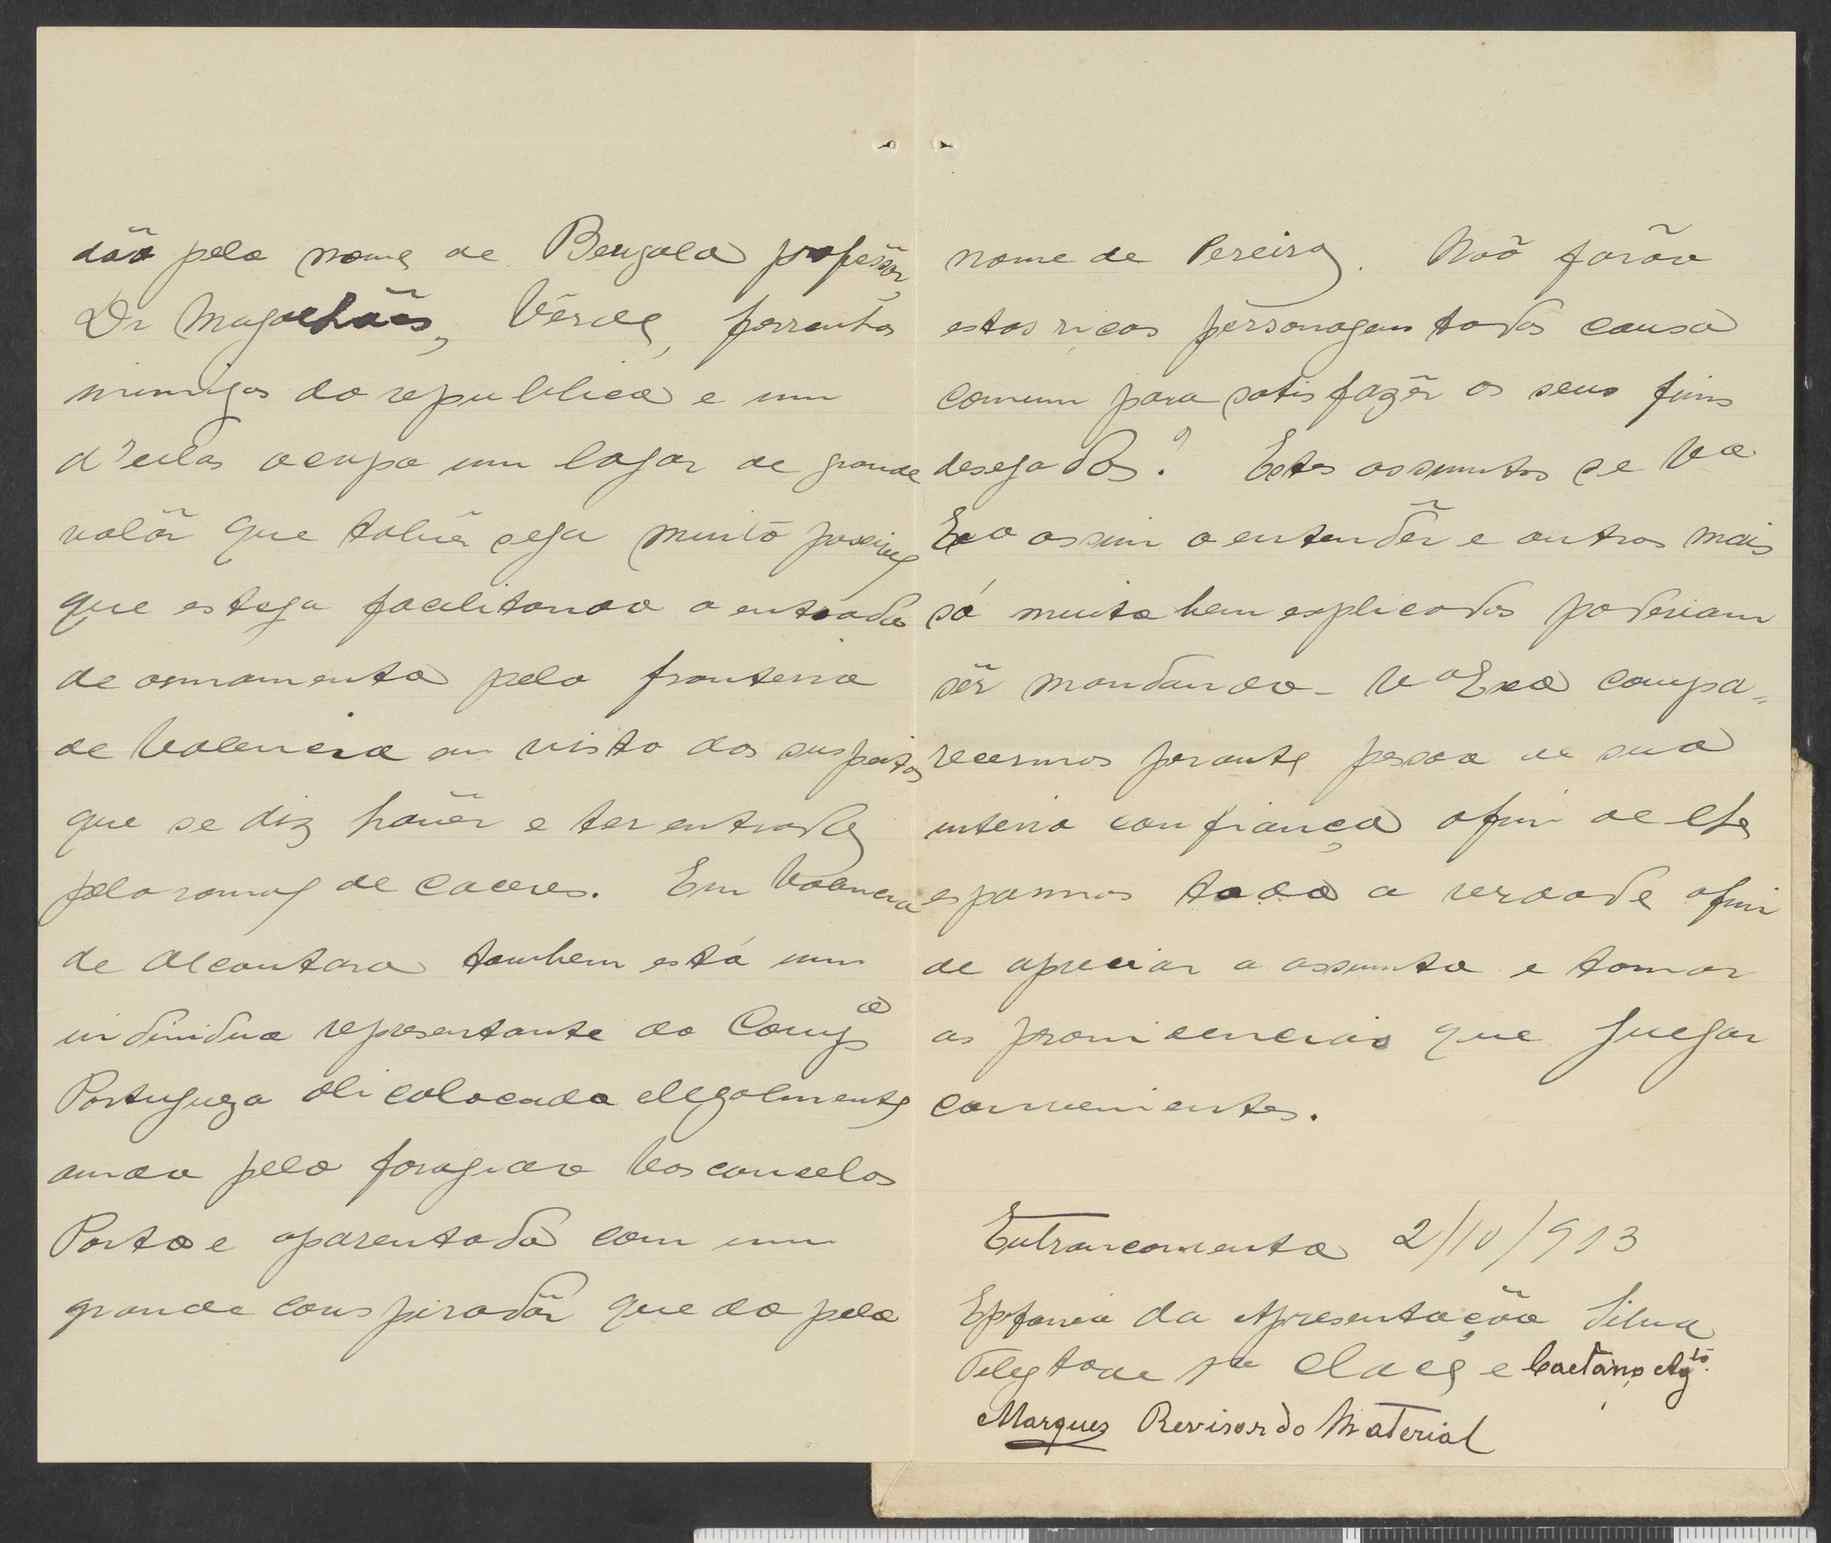 dão pelo nome de Bengala professor,
Dr Magalhães, Vérde, ferrenhos
inimigos da republica e um
d'elles ocupa um lagar de grande
valôr que talvês seja muito possivel
que esteja facilitando a entrada
de armamento pela fronteira
de Valencia em visto dos suspeitos
que se diz havêr e ter entrado
pelo ramal de Caceres. Em Valencia
de Alcantara tambem está um
individuo representante da Compª
Portugueza ali colocado elegalmente
ainda pelo foragido Vasconcelos
Porto e aparentado com um
grande conspiradôr que da pelo
nome de Pereira. Não farão
estas ricas pérsonagens todas causa
comum para satisfazêr os seus fins
desegados? Estes assuntos se Va
Exa assim o entendêr e outros mais
só muito bem esplicados poderiam
sêr mandando-Va Exa compa„
recermos perante pessoa de sua
inteira confiança afim de lhe
espormos toda a verdade afim
de apreciar o assunto e tomar
as providencias que julgar
convenientes.
Entroncamento 2/10/913
Epifanio da Apresentação Silva
Telegta de 1ª Clace e Caetano Agto
Marques Revisor do Material